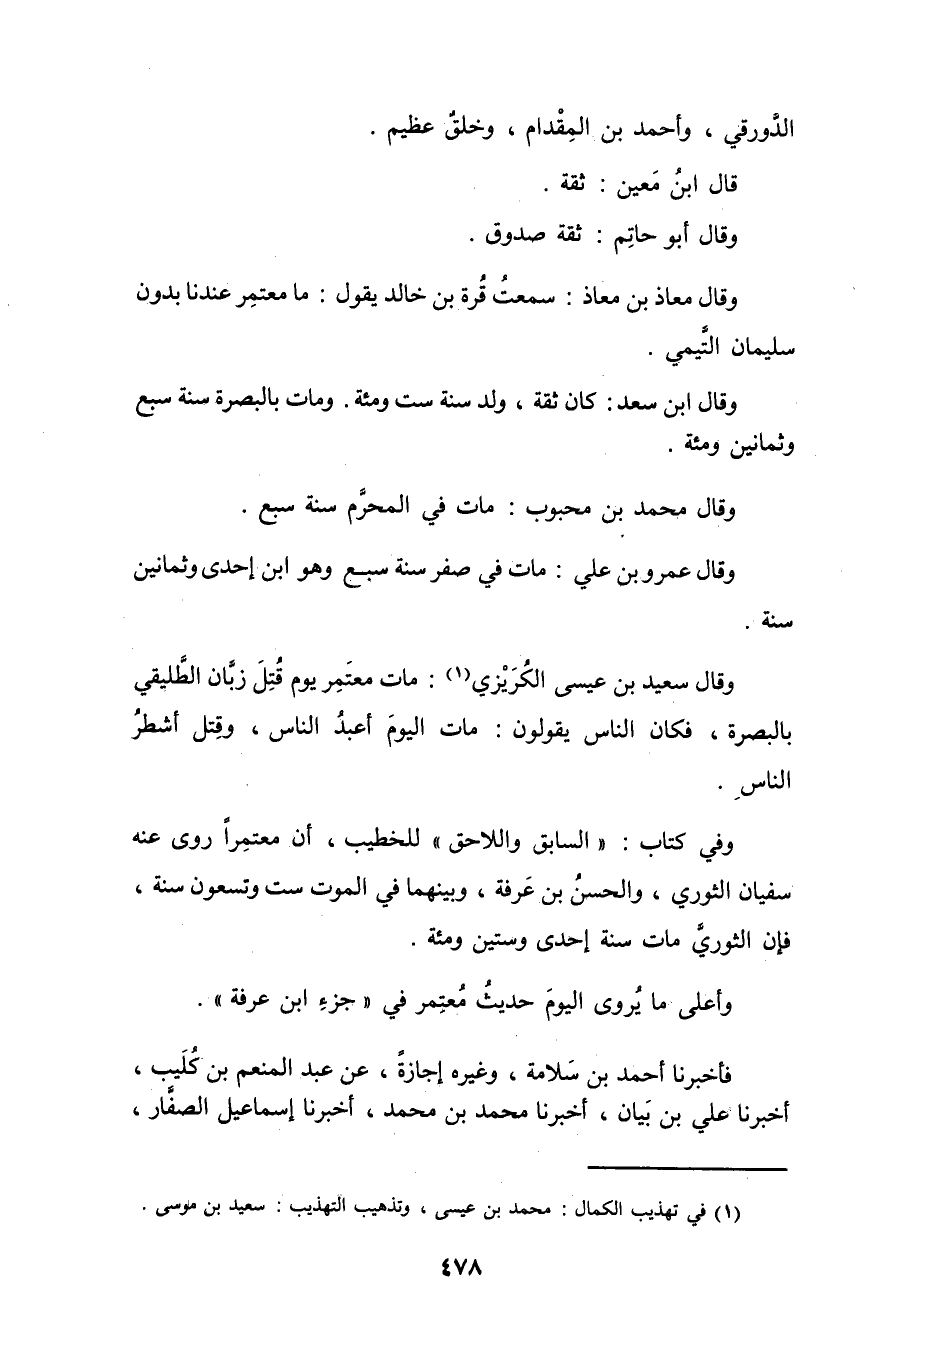 الدَّورقي ، وأحمد بن المِقْدام ، وخلقٌ عظيم .
قال ابنُ مَعين : ثقة .
وقال أبو حاتِم : ثقة صدوق .
وقال معاذ بن معاذ : سمعتُ قُرة بن خالد يقول : ما معتمِر عندنا بدون
سليمان التَّيمي .
وقال ابن سعد : كان ثقة ، ولد سنة ست ومئة . ومات بالبصرة سنة سبع
وثمانين ومئة .
وقال محمد بن محبوب : مات في المحرَّم سنة سبع .
وقال عمرو بن علي : مات في صفر سنة سبع وهو ابن إحدى وثمانين
سنة .
وقال سعيد بن عيسى الكُرَيْزي(١) : مات معتَمِر يوم قُتِلَ زبَّان الطَّليقي
بالبصرة ، فكان الناس يقولون : مات اليومَ أعبدُ الناس ، وقِتل أشطرُ
الناسِ .
وفي كتاب : « السابق واللاحق » للخطيب ، أن معتمِراً روى عنه
سفيان الثوري ، والحسنُ بن عَرفة ، وبينهما في الموت ست وتسعون سنة ،
فإن الثوريَّ مات سنة إحدى وستين ومئة .
وأعلى ما يُروى اليومَ حديثُ مُعتِمر في « جزءِ ابن عرفة » .
فأخبرنا أحمد بن سَلامة ، وغيره إجازةً ، عن عبد المنعم بن كُلَيب ،
أخبرنا علي بن بَيان ، أخبرنا محمد بن محمد ، أخبرنا إسماعيل الصفَّار ،
(١) في تهذيب الكمال : محمد بن عيسى ، وتذهيب التهذيب : سعيد بن موسى .
٤٧٨